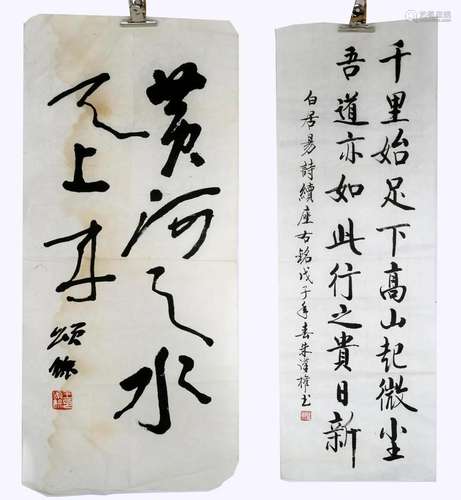 黄河之水
天上来
颂馀
千里始足下高山起微尘
吾道亦如此行之貴日新
白居易詩續座右銘戊子年春朱洋權书